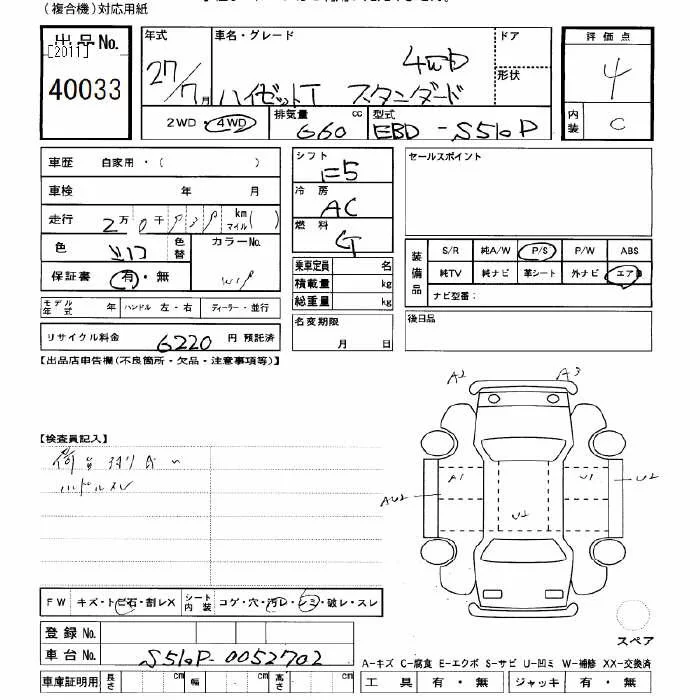 (複合機)対応用紙
出品No.
[2011]
40033
年式
27/7月
車名・グレード
4WD
ハイゼットT スタンダード
ドア
形状
2WD・4WD
排気量 660 cc
型式 EBD-S510P
評価点
4
内装 C
車歴 自家用・( )
車検 年 月
走行 2万0千 km マイル( )
色 シロ 色替
カラーNo.
W19
保証書 有・無
モデル年式 年 ハンドル 左・右 ディーラー・並行
リサイクル料金 6220 円 預託済
シフト F5
冷房 AC
燃料 G
乗車定員 名
積載量 kg
総重量 kg
名変期限
月 日
セールスポイント
装備品
S/R 純A/W P/S P/W ABS
純TV 純ナビ 革シート 外ナビ エアB
ナビ型番:
後日品
【出品店申告欄(不良箇所・欠品・注意事項等)】
【検査員記入】
ハンドルスレ
A2 A3
A1 U1
AU2 U2
U2
FW キズ・トビ石・割レX シート内装 コゲ・穴・汚レ・シミ・破レ・スレ
登録No.
車台No. S510P-0052702
車庫証明用 長さ cm 幅 cm 高さ cm
スペア
A-キズ C-腐食 E-エクボ S-サビ U-凹ミ W-補修 XX-交換済
工具 有・無 ジャッキ 有・無